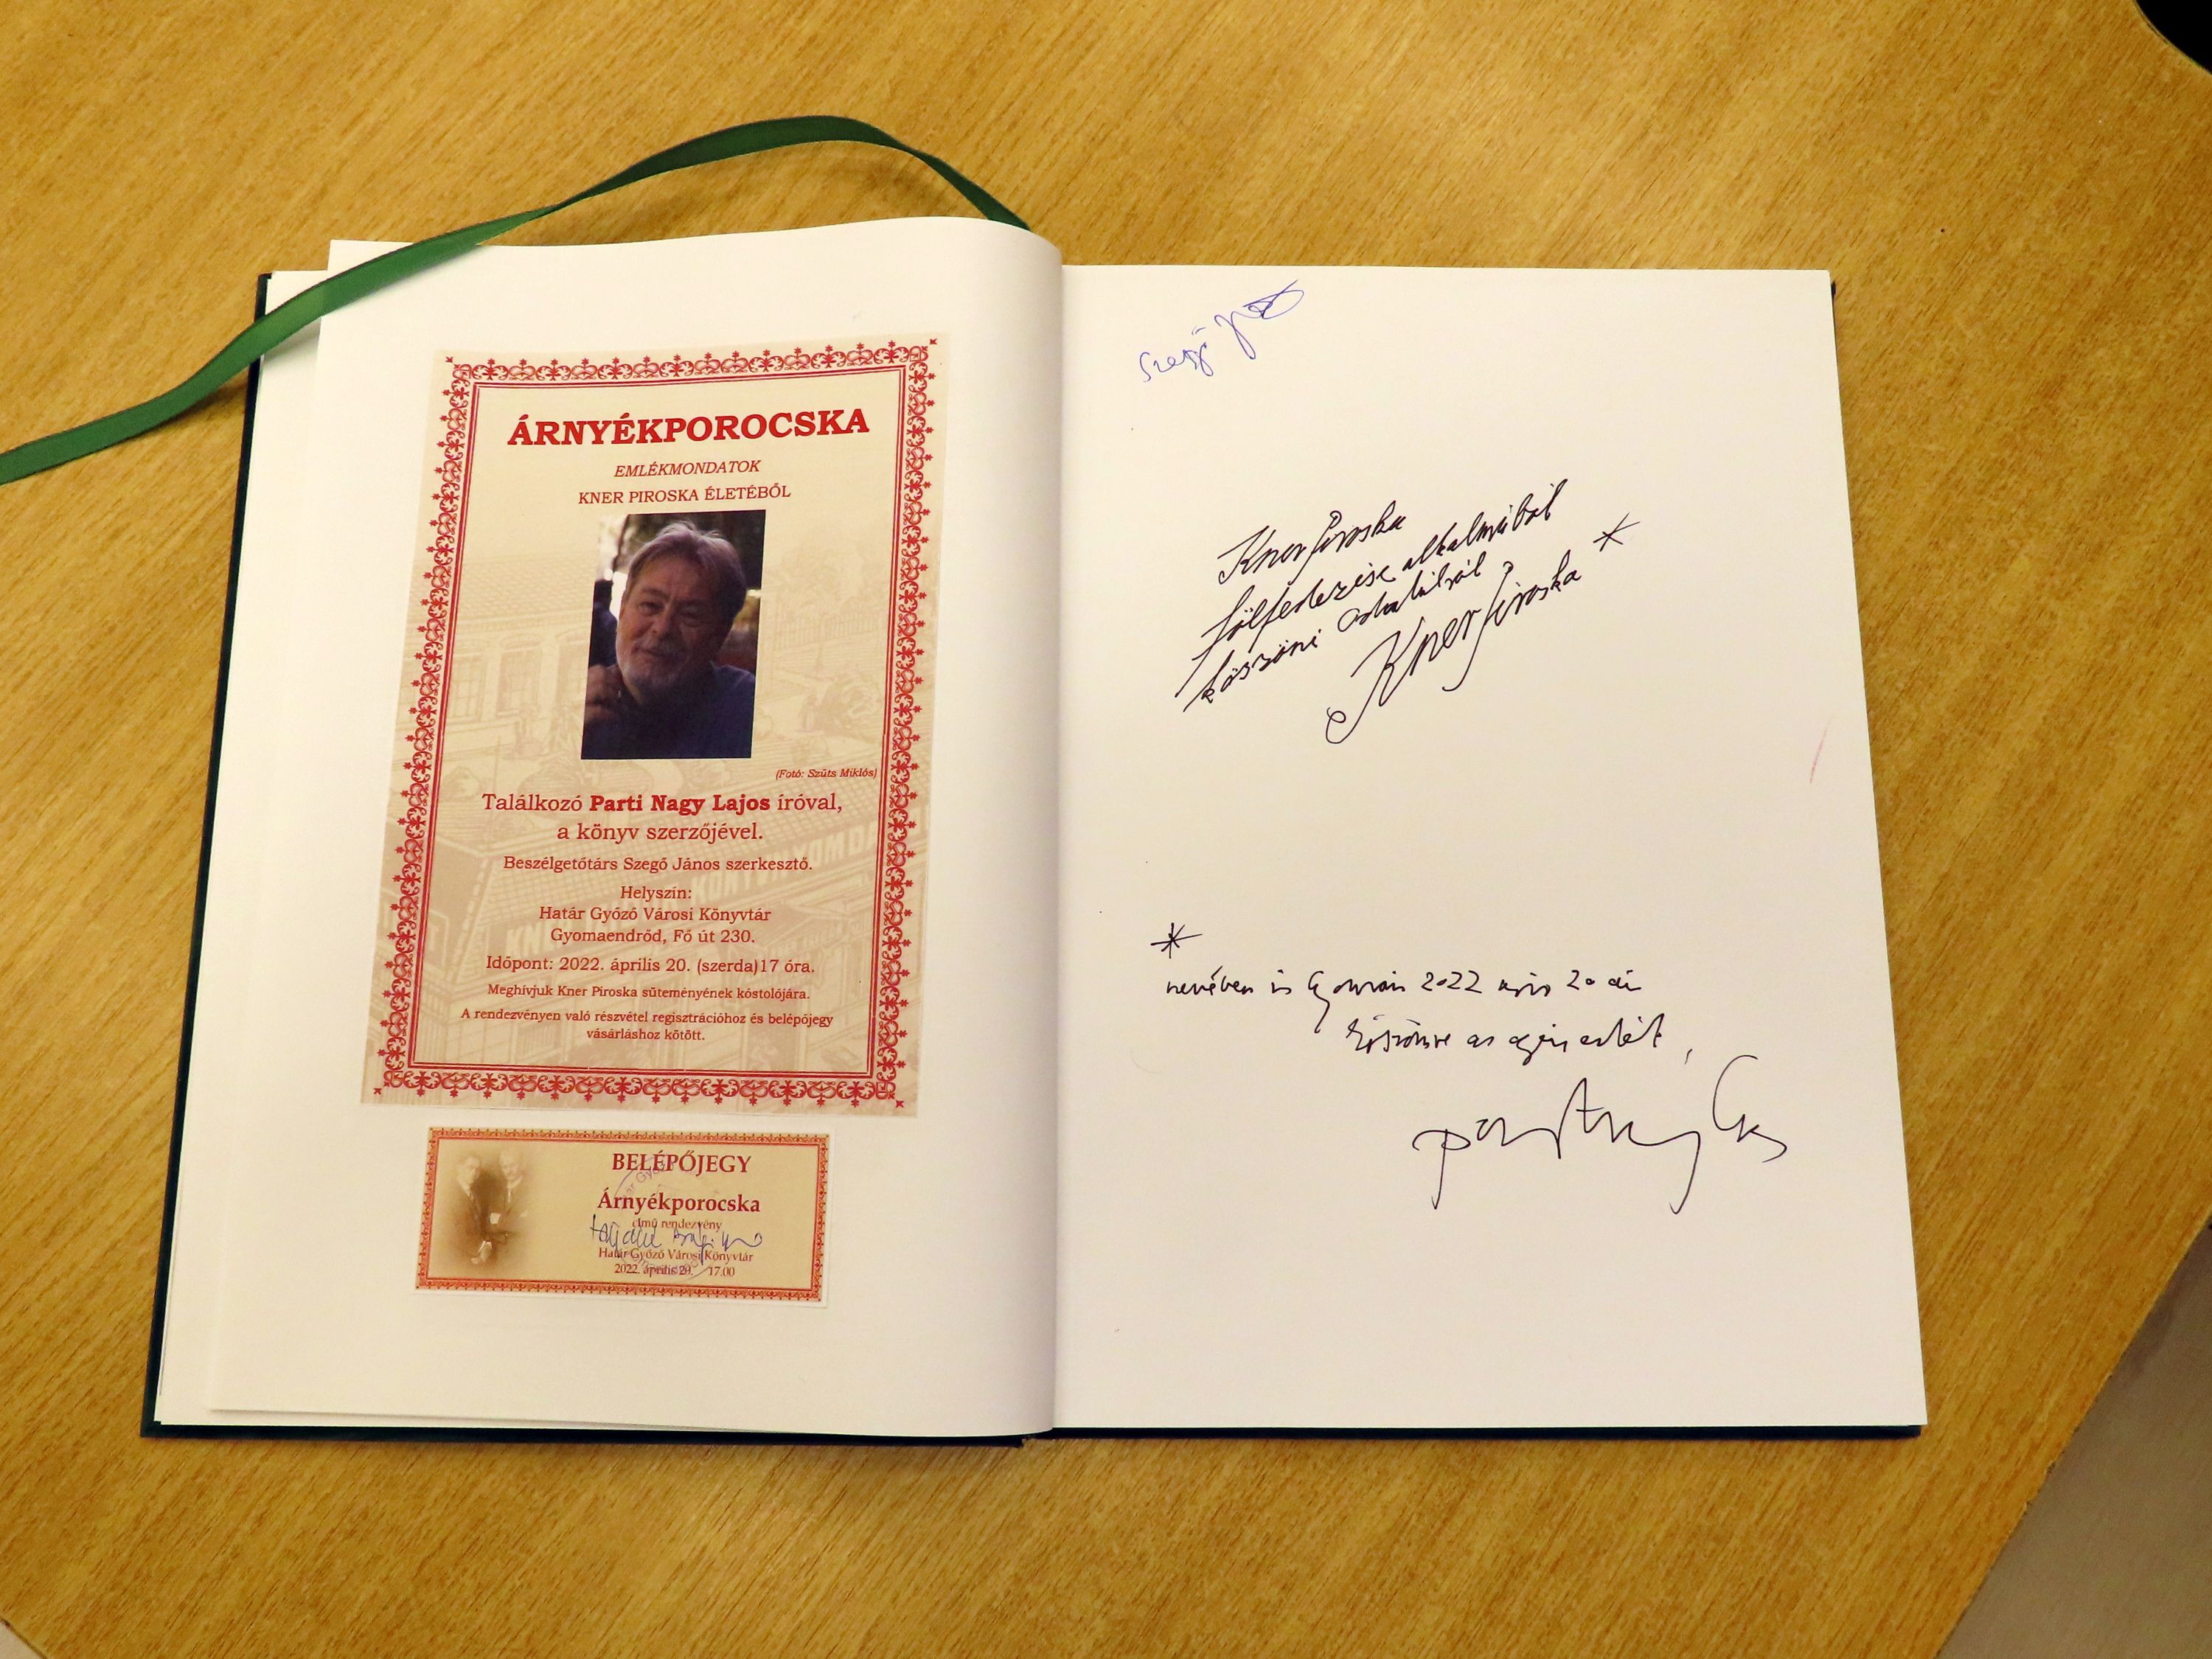 ÁRNYÉKPOROCSKA
EMLÉKMONDATOK
KNER PIROSKA ÉLETÉBŐL
(Fotó: Szűts Miklós)
Találkozó Parti Nagy Lajos íróval,
a könyv szerzőjével.
Beszélgetőtárs Szegő János szerkesztő.
Helyszín:
Határ Győző Városi Könyvtár
Gyomaendrőd, Fő út 230.
Időpont: 2022. április 20. (szerda)17 óra.
Meghívjuk Kner Piroska süteményének kóstolójára.
A rendezvényen való részvétel regisztrációhoz és belépőjegy
vásárláshoz kötött.
BELÉPŐJEGY
Árnyékporocska
című rendezvény
Határ Győző Városi Könyvtár
2022. április 20. 17.00
Szegő
Kner Piroska
fölfedezése alkalmából
köszöni
Kner Piroska *
*
nevében is Gyomán 2022 ápr 20 án
köszönve az egész estét,